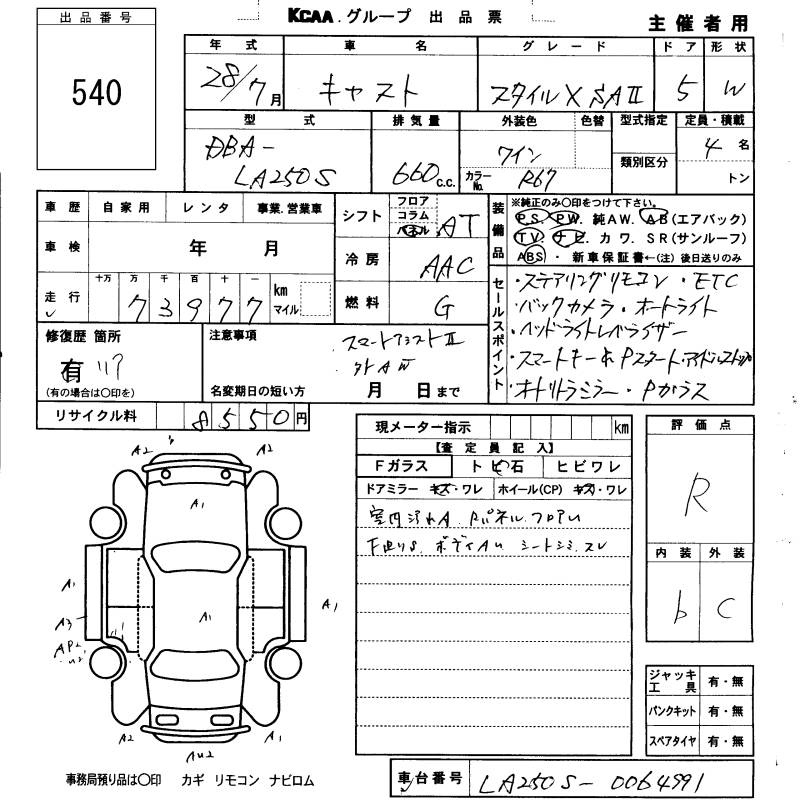 出品番号
540
KCAA.グループ 出品票
主催者用
年式 車名 グレード ドア 形状
28/7月 キャスト スタイルX SAⅡ 5 W
型式 排気量 外装色 色替 型式指定 定員・積載
DBA- LA250S 660c.c. ワイン 4名
カラーNo. R67 類別区分 トン
車歴 自家用 レンタ 事業.営業車
シフト フロア コラム パネル AT
車検 年 月
冷房 AAC
走行 十万 万 千 百 十 一
73977 km マイル
燃料 G
装備品
※純正のみ○印をつけて下さい。
PS. PW. 純AW. AB(エアバック)
TV. ナビ. カワ. SR(サンルーフ)
ABS ・ 新車保証書←(注) 後日送りのみ
セールスポイント
・ステアリングリモコン ・ETC
・バックカメラ・オートライト
・ヘッドライトレベライザー
・スマートキー& Pスタート・アイドルストップ
・オートリトラミラー・Pガラス
修復歴 箇所
有
(有の場合は○印を)
注意事項
スマートアシストⅡ
外AW
名変期日の短い方 月 日まで
リサイクル料 8550円
現メーター指示 km
【査定員記入】
Fガラス トビ石 ヒビワレ
ドアミラー キズ・ワレ ホイール(CP) キズ・ワレ
室内汚れA. Rパネル.フロアU
下廻りS. ボディAU シートシミ.スレ
評価点
R
内装 外装
b C
A2 A2
A1
A1 A1 A1
A3
AP2
U2
A2 A1
AU2
ジャッキ工具 有・無
パンクキット 有・無
スペアタイヤ 有・無
事務局預り品は○印 カギ リモコン ナビロム
車台番号 LA250S-0064991